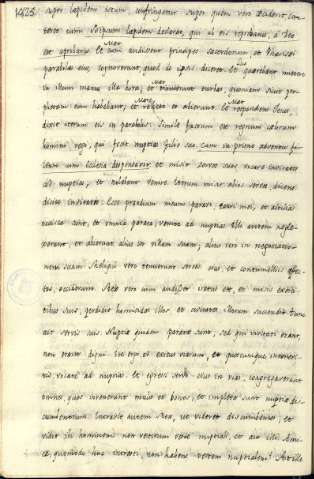 super lapidem istum confringetur super quem vero ceciderit, con
teret eum
et cum audissent principes sacerdotum et Pharisæi
parabolas eius, cognoverunt quod de ipsis diceret. Et quærebant mittere
in illum manus illa hora; et timuerunt turbas, quoniam sicut pro
phetam eum habebant, et et abierunt. Et respondens Iesus,
dixit iterum eis in parabolis: Simile factum est regnum cælorum
homini regi, qui fecit nuptias filio suo cum in primo adventu
et misit servos suos vocare invitatos
ad nuptias, et nolebant venire. Iterum misit alios servos, dicens
dicite invitatis: Ecce prandium meum paravi, tauri mei, et altilia
occisa sunt, et omnia parata, venite ad nuptias. Illi autem negle
xerunt, et abierunt alius in villam suam, alius vero in negociatio
nem suam. Reliqui vero tenuerunt servos eius, et contumeliis affec
tos, occiderunt. Rex vero cum audisset iratus est, et missis exerci
tibus suis, perdidit homicidas illos, et civitatem illorum succendit. Tunc
ait servis suis. Nuptiæ quidem paratæ sunt, sed qui invitati erant,
non fuere digni. Ite ergo ad exitus viarum, et quoscumque inveneri
tis vocate ad nuptias. Et egressi servi eius in vias, congregaverunt
omnes, quos invenerunt malos et bonos, et impletæ sunt nuptiæ dis
cumbentium. Intravit autem Rex, ut videret discumbentes, et
vidit ibi hominem non vestitum veste nuptiali, et ait illi: Ami
ce, quomodo huc intrasti, non habens vestem nuptialem? At ille